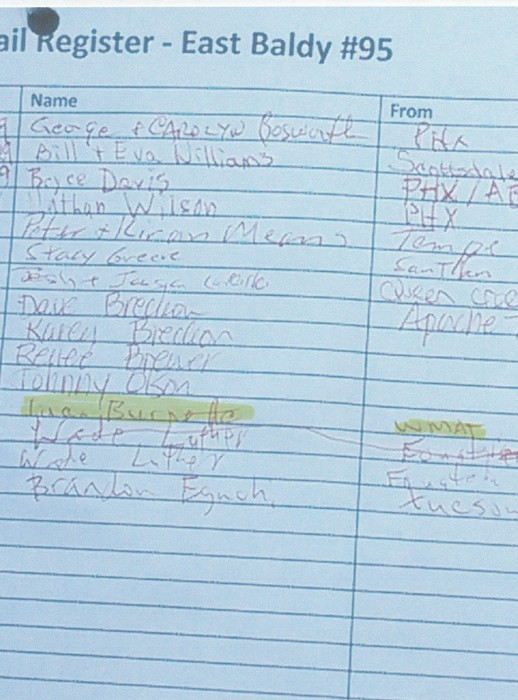 ail Register - East Baldy #95
Name From
George + CAROLYN Bosworth PHX
Bill + Eva Williams Scottsdale
Bryce Davis PHX / AE
Nathan Wilson PHX
Peter + Kiran Means Tempe
Stacy Greene San Tan
Josh + Queen Cree
Dave Bredlion Apache
Karen Bredlion
Renee Brewer
Johnny Olson
Burnette WMAT
Wade Luther
Wade Luther
Brandon Tucson